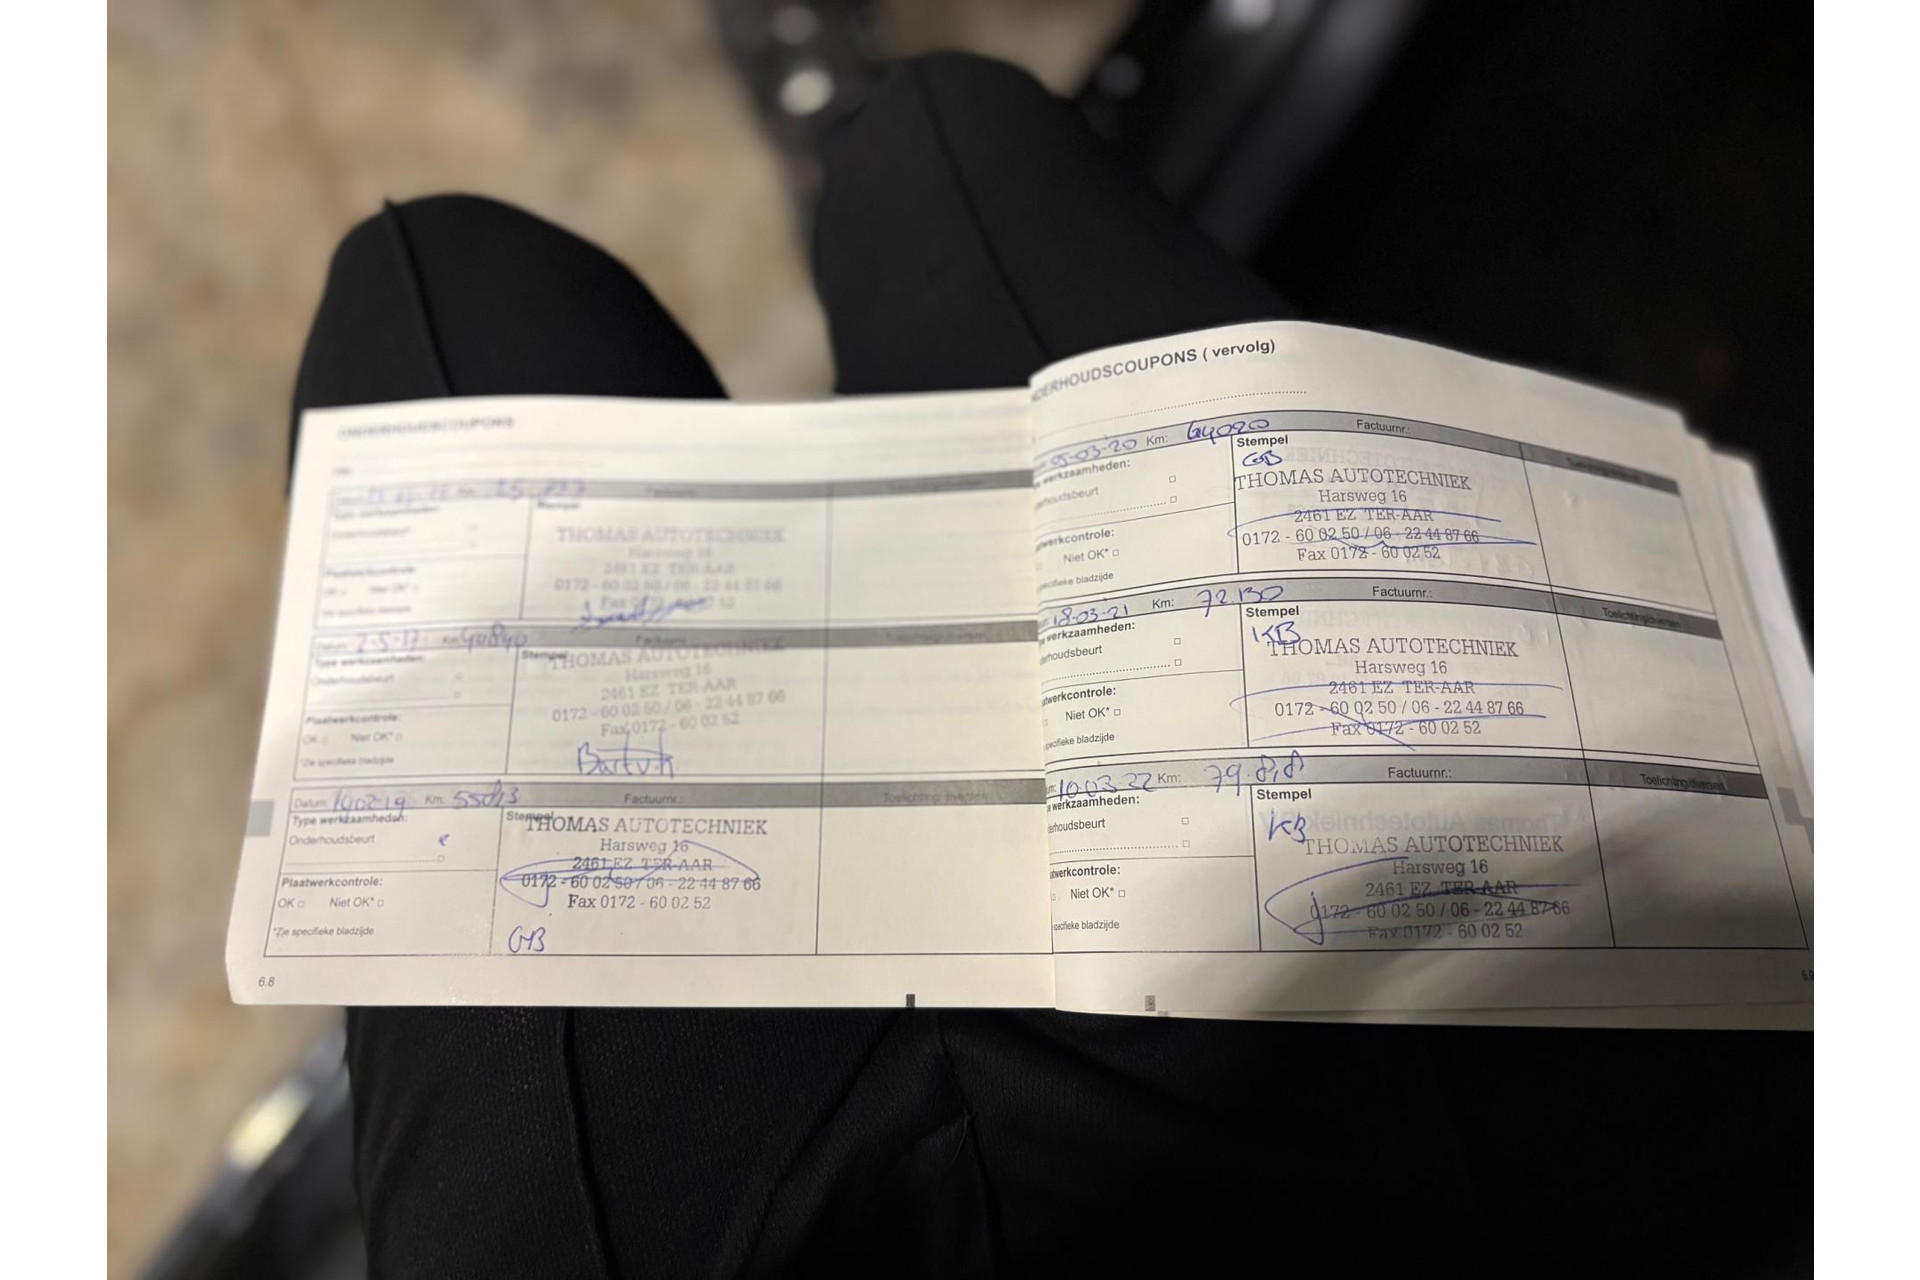 ONDERHOUDSCOUPONS
Factuurnr.:
Stempel
THOMAS AUTOTECHNIEK
Harsweg 16
2461 EZ TER-AAR
0172 - 60 02 50 / 06 - 22 44 87 66
Fax 0172 - 60 02 52
Datum: 2-5-17 Km: 40840 Factuurnr.:
Type werkzaamheden:
Onderhoudsbeurt
Plaatwerkcontrole:
OK Niet OK*
*Zie specifieke bladzijde
Stempel
THOMAS AUTOTECHNIEK
Harsweg 16
2461 EZ TER-AAR
0172 - 60 02 50 / 06 - 22 44 87 66
Fax 0172 - 60 02 52
Datum: Km: Factuurnr.: Toelichting/diversen
Type werkzaamheden:
Onderhoudsbeurt
Plaatwerkcontrole:
OK Niet OK*
*Zie specifieke bladzijde
Stempel
THOMAS AUTOTECHNIEK
Harsweg 16
2461 EZ TER-AAR
0172 - 60 02 50 / 06 - 22 44 87 66
Fax 0172 - 60 02 52
GB
6.8
DERHOUDSCOUPONS ( vervolg)
05-03-'20 Km: 64020 Factuurnr.: Toelichting/diversen
werkzaamheden:
houdsbeurt
twerkcontrole:
Niet OK*
pecifieke bladzijde
Stempel
GB
THOMAS AUTOTECHNIEK
Harsweg 16
2461 EZ TER-AAR
0172 - 60 02 50 / 06 - 22 44 87 66
Fax 0172 - 60 02 52
18-03-'21 Km: 72.130 Factuurnr.: Toelichting/diversen
werkzaamheden:
houdsbeurt
atwerkcontrole:
Niet OK*
pecifieke bladzijde
Stempel
KB
THOMAS AUTOTECHNIEK
Harsweg 16
2461 EZ TER-AAR
0172 - 60 02 50 / 06 - 22 44 87 66
Fax 0172 - 60 02 52
10-03-22 Km: Factuurnr.: Toelichting/diversen
werkzaamheden:
houdsbeurt
atwerkcontrole:
Niet OK*
pecifieke bladzijde
Stempel
KB
THOMAS AUTOTECHNIEK
Harsweg 16
2461 EZ TER-AAR
0172 - 60 02 50 / 06 - 22 44 87 66
Fax 0172 - 60 02 52